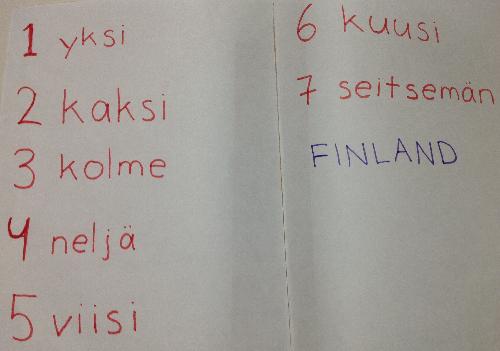 1 yksi
2 kaksi
3 kolme
4 neljä
5 viisi
6 kuusi
7 seitsemän
FINLAND